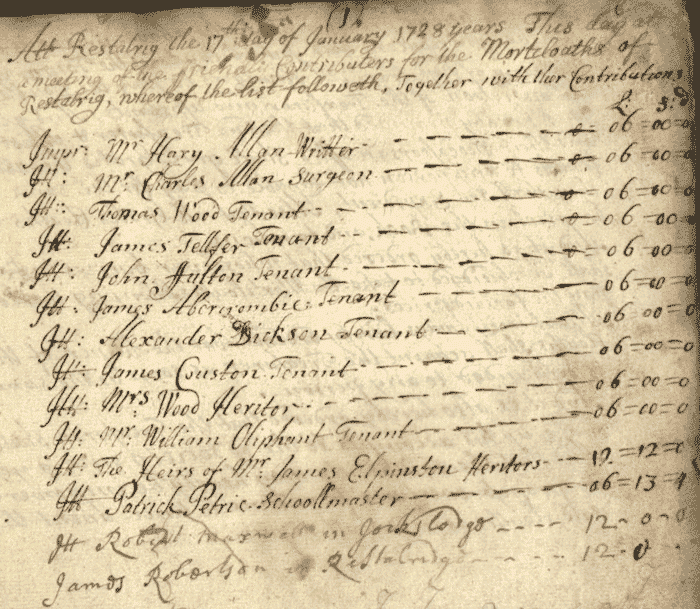 (1)
Att Restalrig the 17th day of January 1728 years This day att
a meeting of the Contributers for the Mortcloaths of
Restalrig, whereof the list followeth, Together with their Contributions
L: S: d
Impr: Mr Hary Allan Writter 06=00=0
Itt: Mr Charles Allan Surgeon 06=00=0
Itt: Thomas Wood Tenant 06=00=0
Itt: James Tellfer Tenant 06=00=0
Itt: John Fulton Tenant 06=00=0
Itt: James Abercrombie Tenant 06=00=0
Itt: Alexander Dickson Tenant 06=00=0
Itt: James Couston Tenant 06=00=0
Itt: Mrs Wood Heritor 06=00=0
Itt: Mr William Oliphant Tenant 06=00=0
Itt: The Heirs of Mr James Elpinston Heritors 12=12=0
Itt Patrick Petrie Schoollmaster 06=13=4
Itt Robert Maxwell in Jocks lodge 12-0-0
James Robertson in Restalridge 12-0